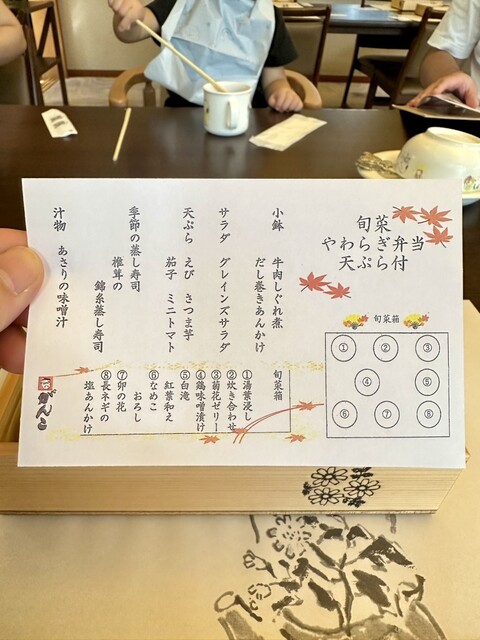 旬菜
やわらぎ弁当
天ぷら付
旬菜箱
① ② ③
④ ⑤
⑥ ⑦ ⑧
小鉢 牛肉しぐれ煮
だし巻きあんかけ
サラダ グレインズサラダ
天ぷら えび さつま芋
茄子 ミニトマト
季節の蒸し寿司
椎茸の
錦糸蒸し寿司
汁物 あさりの味噌汁
旬菜箱
①湯葉浸し
②炊き合わせ
③菊花ゼリー
④鶏味噌漬け
⑤白滝
紅葉和え
⑥なめこ
おろし
⑦卯の花
⑧長ネギの
塩あんかけ
がんこ